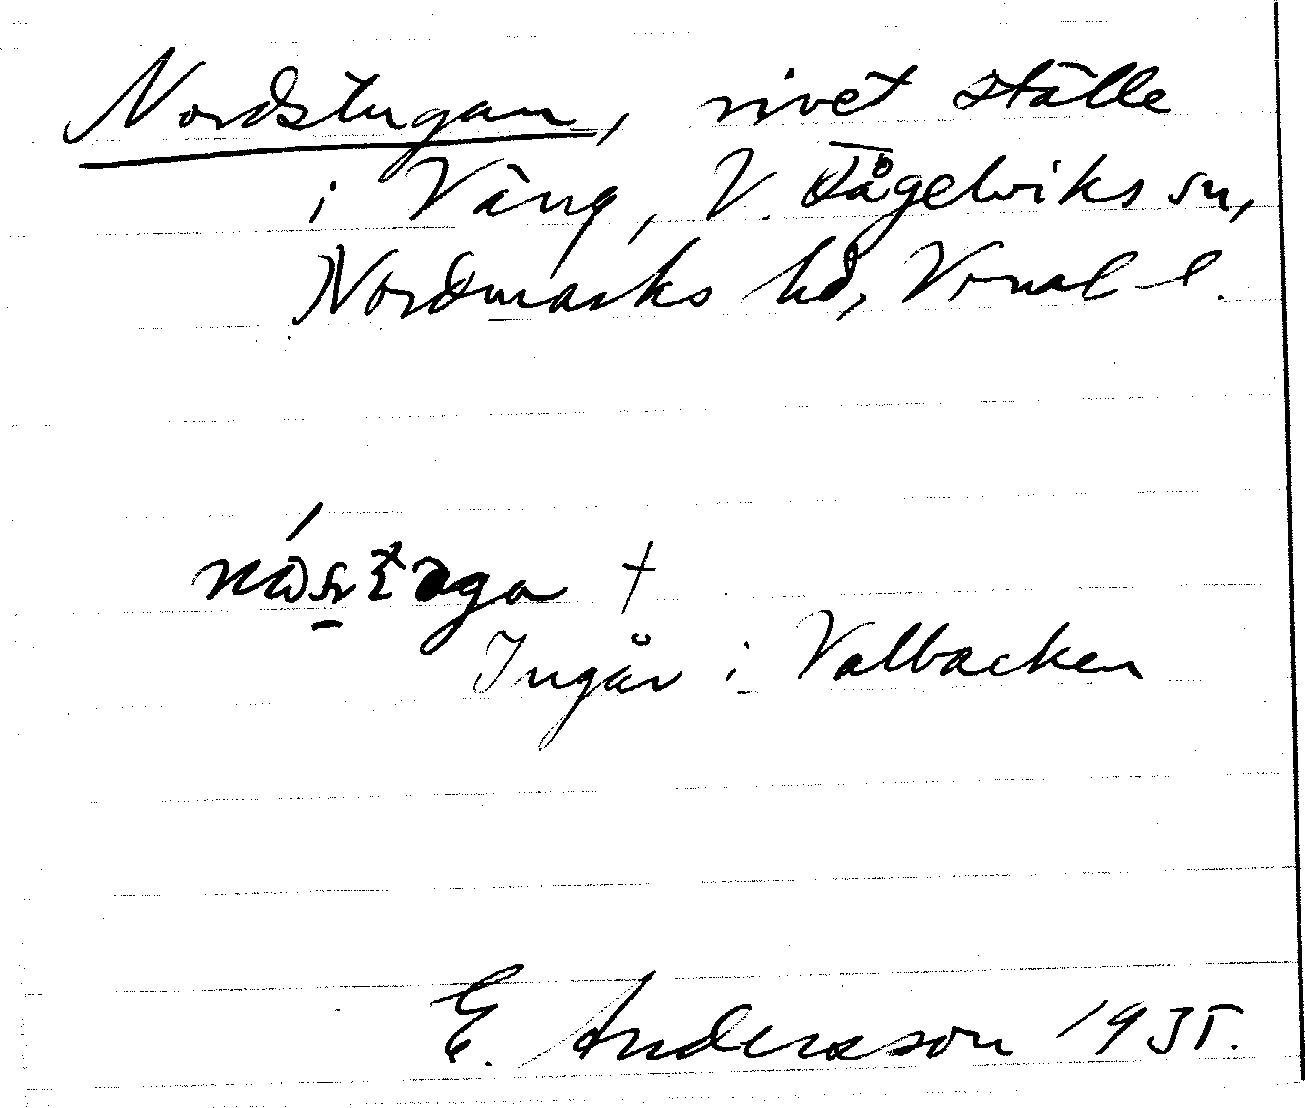 Nordstugan, rivet ställe
i Väng, V. Fågelviks sn,
Nordmarks hd, Vrml l.
†
Ingår i Valbacken
E. Andersson 1935.